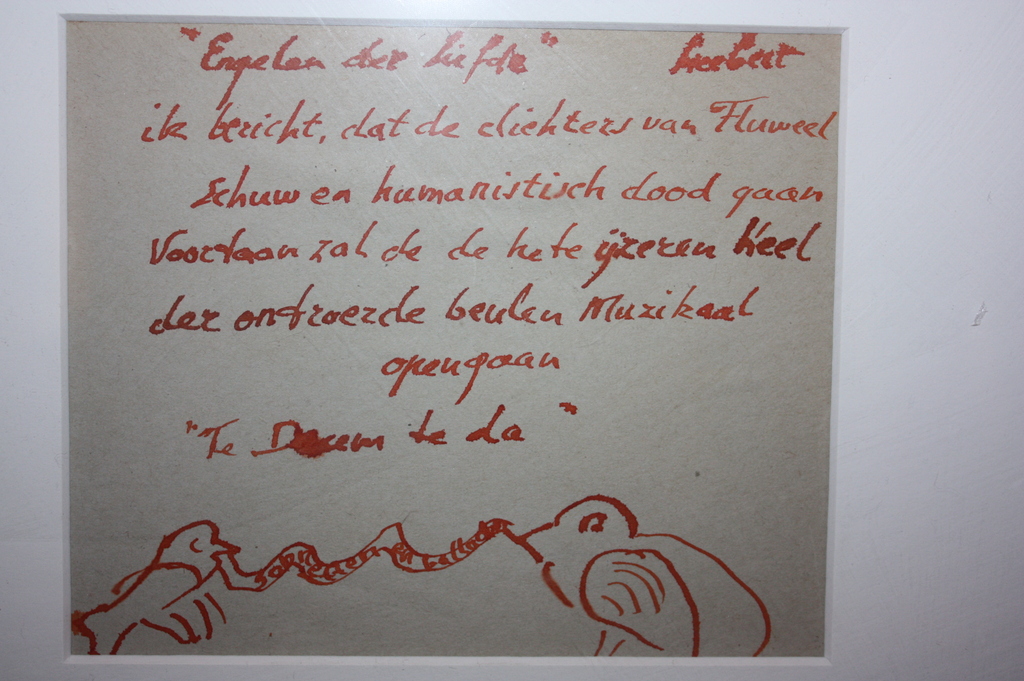 "Engelen der liefde" Lucebert
ik bericht, dat de dichters van Fluweel
Schuw en humanistisch dood gaan
Voortaan zal de de hete ijzeren Keel
der ontroerde beulen Muzikaal
opengaan
"Te Deum te da"
en